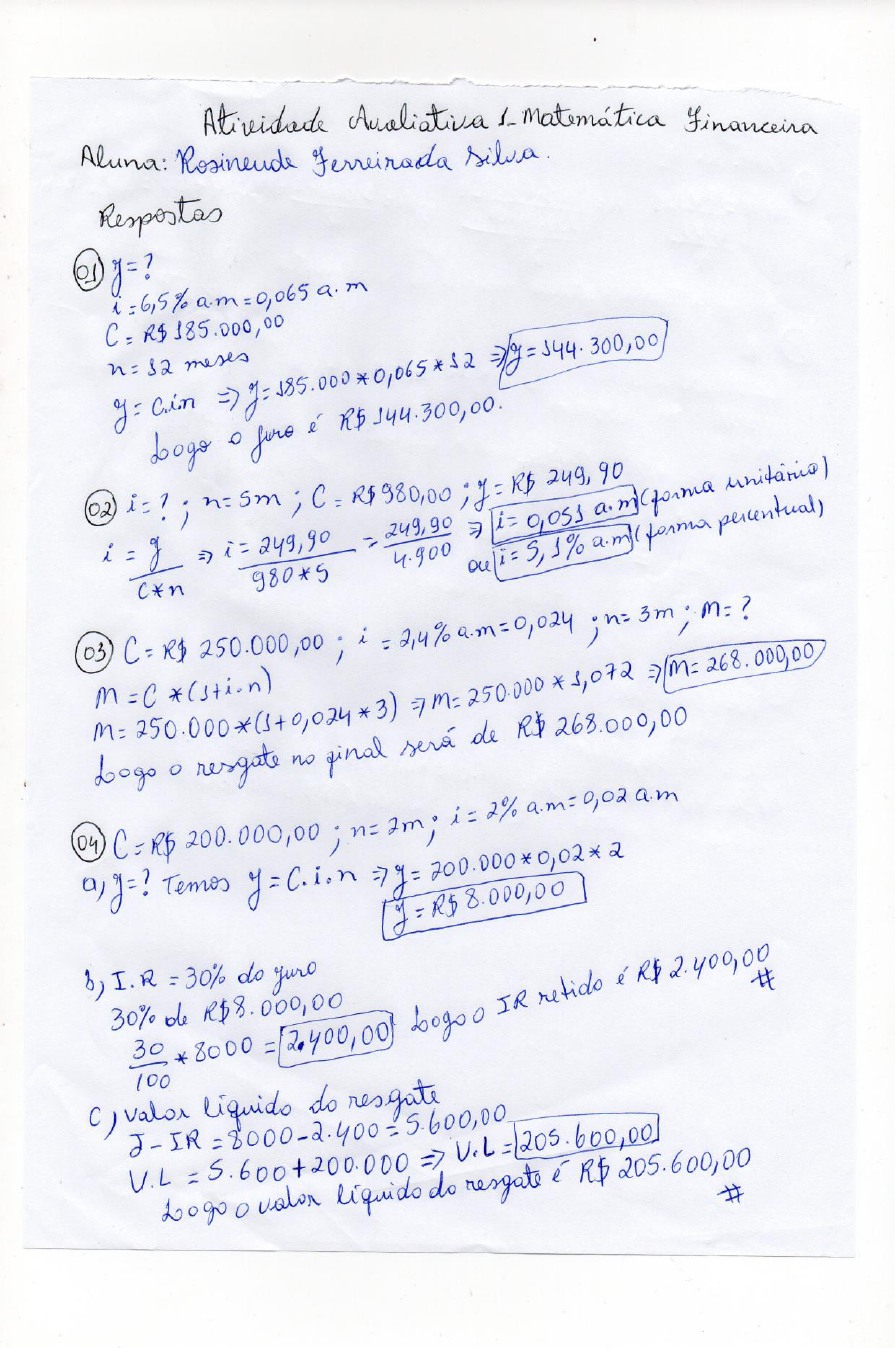 Atividade Avaliativa 1_ Matemática Financeira
Aluna: Rosineude Ferreira da Silva.
Respostas
01 J = ?
i = 6,5% a.m = 0,065 a.m
C = R$ 185.000,00
n = 12 meses
J = C.i.n ⇒ J = 185.000 * 0,065 * 12 ⇒ J = 144.300,00
Logo o juro é R$ 144.300,00.
02 i = ? ; n = 5m ; C = R$ 980,00 ; J = R$ 249,90
i = J / C*n ⇒ i = 249,90 / 980*5 = 249,90 / 4.900 ⇒ i = 0,051 a.m (forma unitário)
ou i = 5,1% a.m (forma percentual)
03 C = R$ 250.000,00 ; i = 2,4% a.m = 0,024 ; n = 3m ; M = ?
M = C * (1+i.n)
M = 250.000 * (1+0,024 * 3) ⇒ M = 250.000 * 1,072 ⇒ M = 268.000,00
Logo o resgate no final será de R$ 268.000,00
04 C = R$ 200.000,00 ; n = 2m ; i = 2% a.m = 0,02 a.m
a, J = ? Temos J = C.i.n ⇒ J = 200.000 * 0,02 * 2
J = R$ 8.000,00
b, I.R = 30% do juro
30% de R$ 8.000,00
30/100 * 8000 = 2.400,00 Logo o IR retido é R$ 2.400,00 #
C, valor líquido do resgate
J - IR = 8000 - 2.400 = 5.600,00
V.L = 5.600 + 200.000 ⇒ V.L = 205.600,00
Logo o valor líquido do resgate é R$ 205.600,00 #